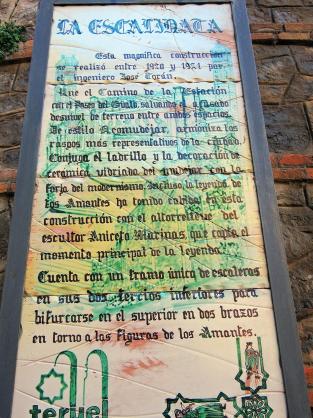 LA ESCALINATA
Esta magnífica construcción
se realizó entre 1920 y 1921 por
el ingeniero José Torán.
Une el Camino de la Estación
con el Paseo del Óvalo, salvando el acusado
desnivel de terreno entre ambos espacios.
De estilo Neomudéjar, armoniza los
rasgos más representativos de la ciudad.
Conjuga el ladrillo y la decoración de
cerámica vidriada del mudéjar con la
forja del modernismo. Incluso la leyenda de
los Amantes ha tenido cabida en esta
construcción con el altorrelieve del
escultor Aniceto Marinas, que capta el
momento principal de la leyenda.
Cuenta con un tramo único de escaleras
en sus dos tercios inferiores para
bifurcarse en el superior en dos brazos
en torno a las figuras de los Amantes.
teruel